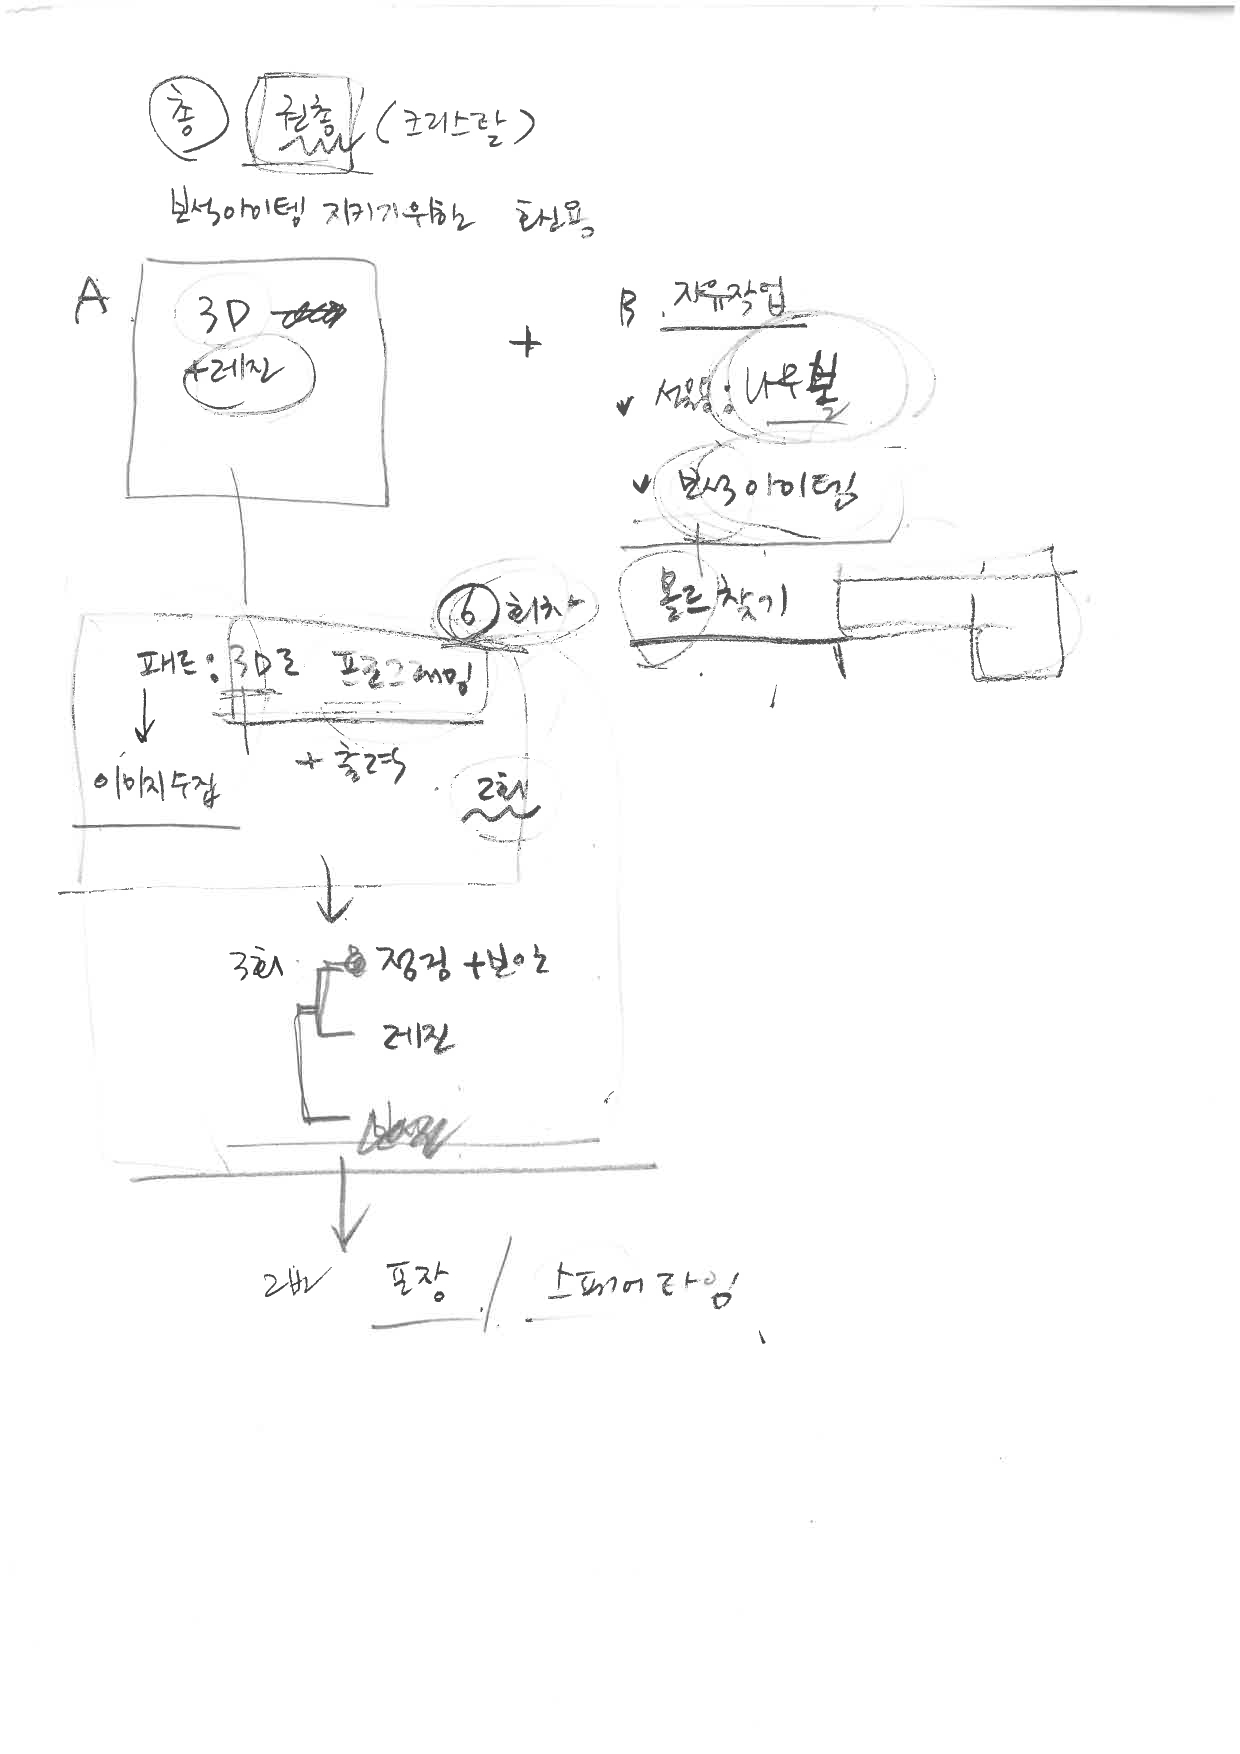 총 권총 (크리스탈)
보석아이템 지키기위한 호신용
A
3D
+레진
+
B 자유작업
나우볼
보석아이템
몰드 찾기
6 회차
패트 : 3D로 프로그래밍
이미지수집
+ 출력
2회
3회
점검 + 보완
레진
2번 포장 / 스페어타임